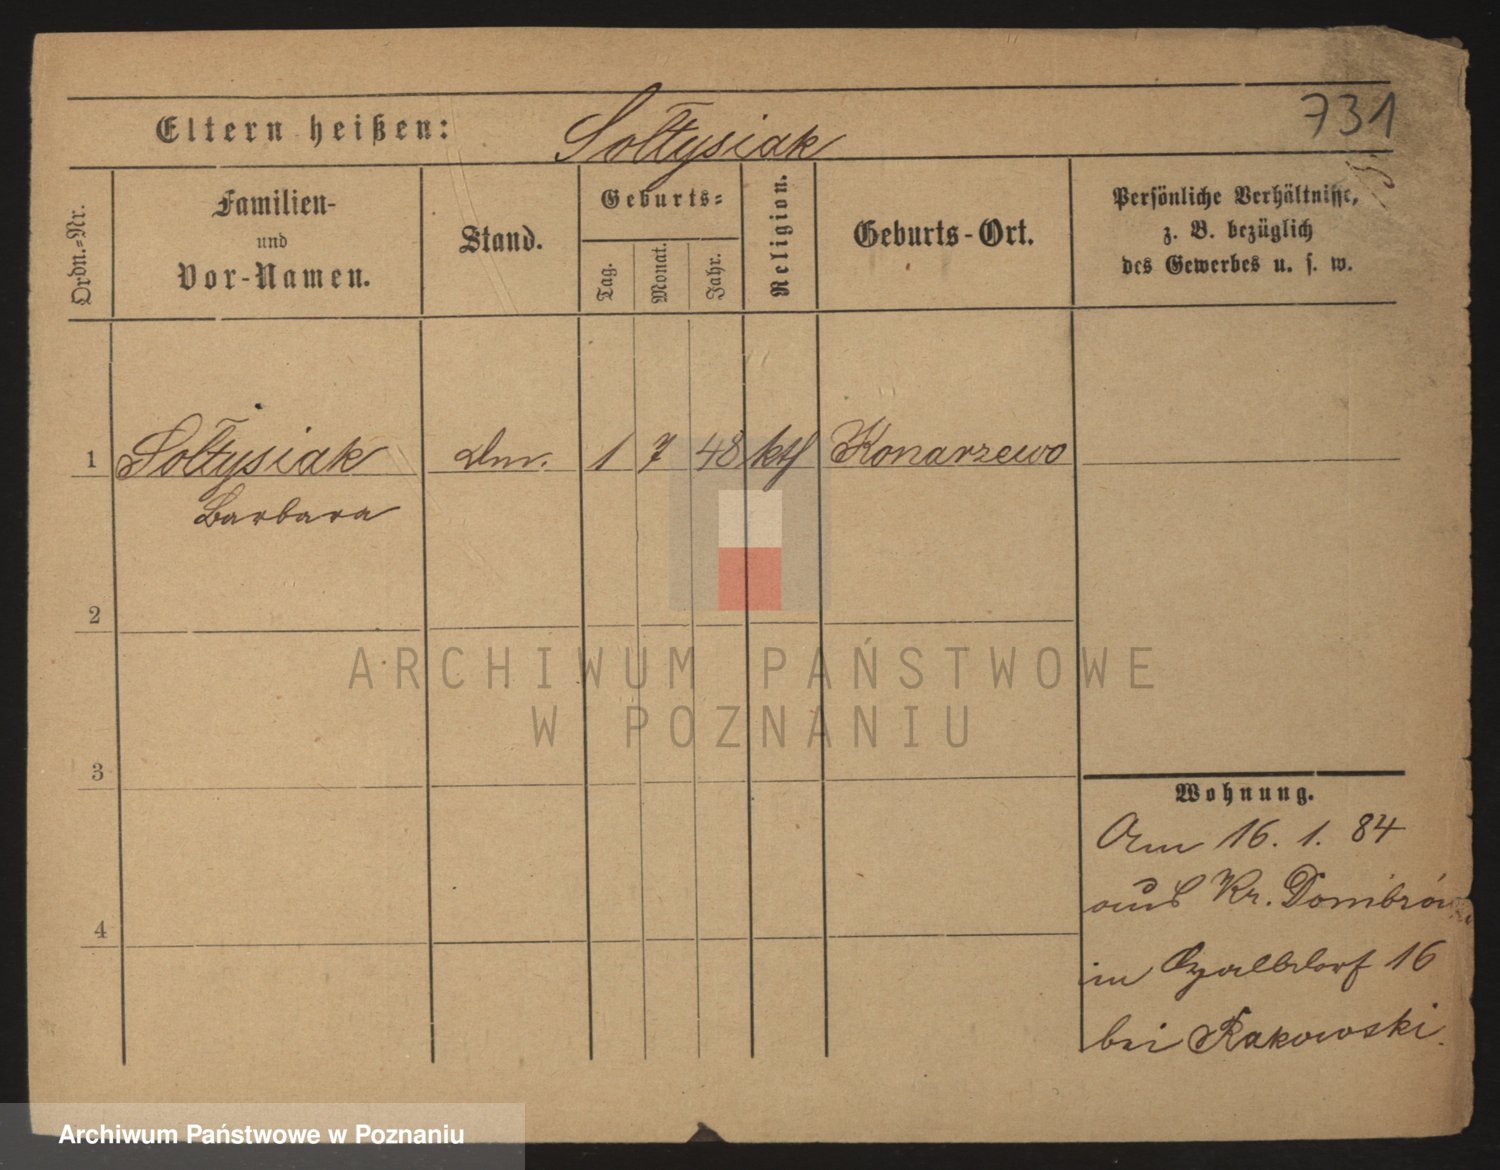 731
Eltern heißen: Sołtysiak
Ordn.=Nr.
Familien-
und
Vor-Namen.
Stand.
Geburts=
Tag.
Monat.
Jahr.
Religion.
Geburts-Ort.
Persönliche Verhältnisse,
z. B. bezüglich
des Gewerbes u. s. w.
1 Sołtysiak 1 7 48 kth Konarzewo
Barbara
2
ARCHIWUM PAŃSTWOWE
W POZNANIU
3
Wohnung.
Am 16. 1. 84
aus Kr. Dombrów
4
in 16
bei Rakowski.
Archiwum Państwowe w Poznaniu